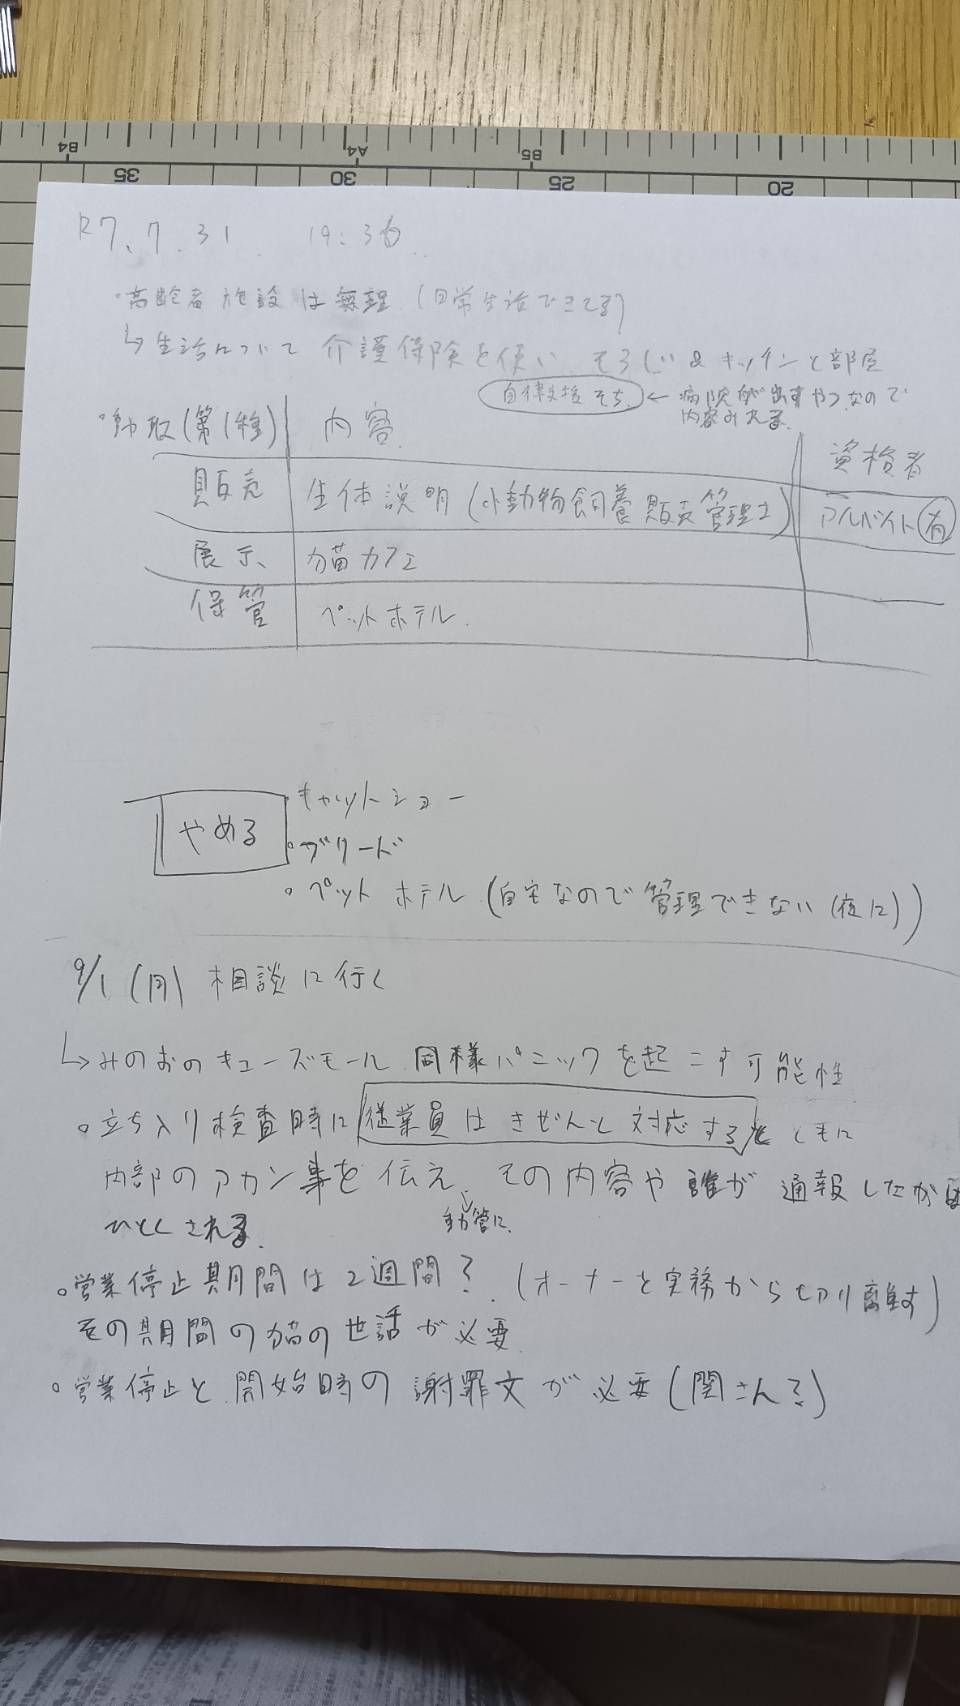 B4 A4 B5
35 30 25 20
R7.7.31 19:36
・高齢者施設は無理(日常生活できてる)
↳生活について介護保険を使い そうじ&キッチンと部屋
自律支援 ← 病院が出すやつなので
内容みれる
・動取(第1種) 内容 資格者
販売 生体説明(小動物飼養販売管理士) アルバイト有
展示 猫カフェ
保管 ペットホテル
やめる ・キャットショー
・ブリード
・ペットホテル(自宅なので管理できない(夜に))
9/1(月)相談に行く
↳みのおのキューズモール同様パニックを起こす可能性
・立ち入り検査時に従業員はきぜんと対応すると ともに
内部のアカン事を伝え、その内容や誰が通報したかは
ひとくされる。 動管に
・営業停止期間は2週間?(オーナーを実務から切り離す)
その期間の猫の世話が必要
・営業停止と開始時の謝罪文が必要(関さん?)